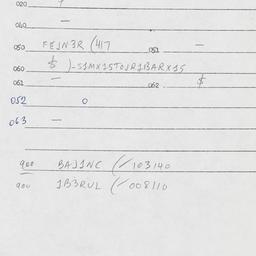 020
040 —
050 FEJN3R (417 051 —
060 $ )-S1MX15TOJR1BARX15
061 — 062 $
052 0
063 —
900 BAJ1NC (/103140
900 1B3RUL (/008110